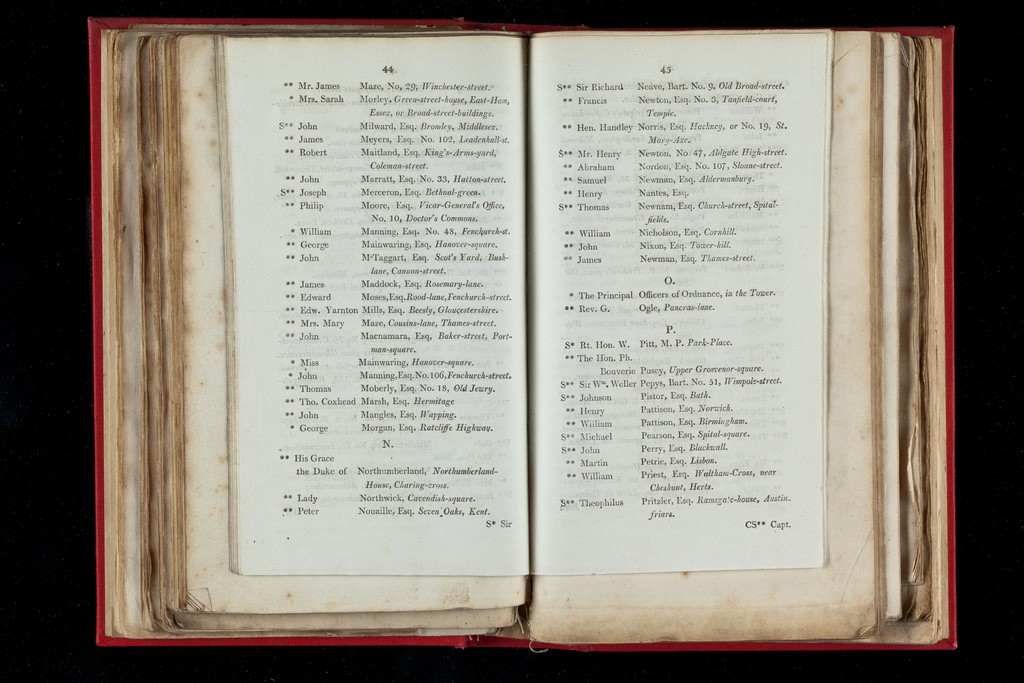 44
** Mr. James Maze, No, 29, Winchester-street.
* Mrs. Sarah Morley, Green-street-house, East-Ham,
Essex, or Broad-street-buildings.
S** John Milward, Esq. Bromley, Middlesex.
** James Meyers, Esq. No. 102, Leadenhall-st.
** Robert Maitland, Esq. King's-Arms-yard,
Coleman-street.
** John Marratt, Esq. No. 33, Hatton-street.
S** Joseph Merceron, Esq. Bethnal-green.
** Philip Moore, Esq. Vicar-General's Office,
No. 10, Doctor's Commons.
* William Manning, Esq. No. 48, Fenchurch-st.
** George Mainwaring, Esq. Hanover-square.
** John McTaggart, Esq. Scot's Yard, Bush-
lane, Cannon-street.
** James Maddock, Esq. Rosemary-lane.
** Edward Moses, Esq. Rood-lane, Fenchurch-street.
** Edw. Yarnton Mills, Esq. Beesly, Gloucestershire.
** Mrs. Mary Maze, Cousins-lane, Thames-street.
** John Macnamara, Esq. Baker-street, Port-
man-square.
* Miss Mainwaring, Hanover-square.
* John Manning, Esq. No. 106, Fenchurch-street.
** Thomas Moberly, Esq. No. 18, Old Jewry.
** Tho. Coxhead Marsh, Esq. Hermitage
** John Mangles, Esq. Wapping.
* George Morgan, Esq. Ratcliffe Highway.
N.
** His Grace
the Duke of Northumberland, Northumberland-
House, Charing-cross.
** Lady Northwick, Cavendish-square.
** Peter Nouaille, Esq. Seven Oaks, Kent.
S* Sir
45
S** Sir Richard Neave, Bart. No. 9, Old Broad-street.
** Francis Newton, Esq. No. 3, Tanfield-court,
Temple.
** Hen. Handley Norris, Esq. Hackney, or No. 19, St.
Mary-Axe.
S** Mr. Henry Newton, No. 47, Aldgate High-street.
** Abraham Nordon, Esq. No. 107, Sloane-street.
** Samuel Newman, Esq. Aldermanbury.
** Henry Nantes, Esq.
S** Thomas Newnam, Esq. Church-street, Spital-
fields.
** William Nicholson, Esq. Cornhill.
** John Nixon, Esq. Tower-hill.
** James Newman, Esq. Thames-street.
O.
* The Principal Officers of Ordnance, in the Tower.
** Rev. G. Ogle, Pancras-lane.
P.
S* Rt. Hon. W. Pitt, M. P. Park-Place.
** The Hon. Ph.
Bouverie Pusey, Upper Grosvenor-square.
S** Sir Wm. Weller Pepys, Bart. No. 51, Wimpole-street.
S** Johnson Pistor, Esq. Bath.
** Henry Pattison, Esq. Norwich.
** William Pattison, Esq. Birmingham.
S** Michael Pearson, Esq. Spital-square.
S** John Perry, Esq. Blackwall.
** Martin Petrie, Esq. Lisbon.
** William Priest, Esq. Waltham-Cross, near
Cheshunt, Herts.
S** Theophilus Pritzler, Esq. Ramsgate-house, Austin-
friars.
CS** Capt.